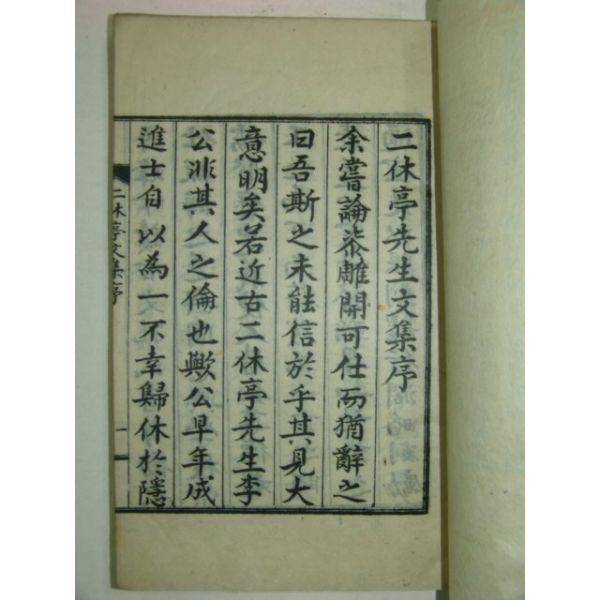 二休亭先生文集序
余嘗論漆雕開可仕而猶辭之
曰吾斯之未能信於乎其見大
意明矣若近古二休亭先生李
公非其人之倫也歟公早年成
進士自以為一不幸歸休於隱
二休亭文集序
一